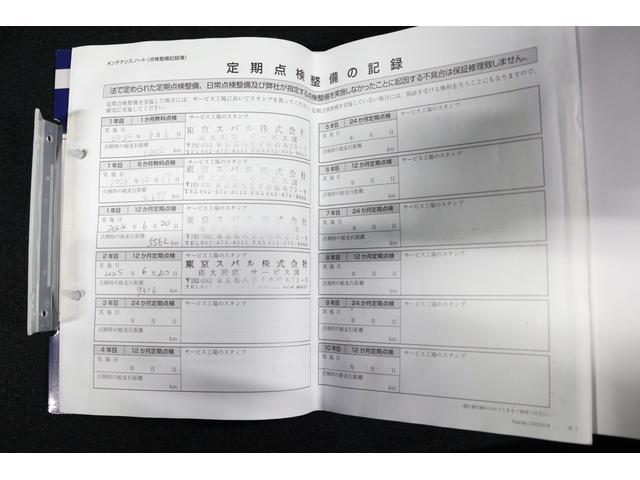 メンテナンスノート（点検整備記録簿）
定期点検整備の記録
法で定められた定期点検整備、日常点検整備及び弊社が指定する点検整備を実施しなかったことに起因する不具合は保証修理致しません。
定期点検整備を実施した場合には、サービス工場においてスタンプを貰ってください。
確実に実施してください。
1年目 1か月無料点検 サービス工場のスタンプ
実施日
2023年8月6日
点検時の総走行距離 km
東京スバル株式会社
南大沢店 サービス課
1年目 6か月無料点検 サービス工場のスタンプ
実施日
2023年12月17日
点検時の総走行距離 km
東京スバル株式会社
南大沢店 サービス課
1年目 12か月定期点検 サービス工場のスタンプ
実施日
2024年6月20日
点検時の総走行距離 5562 km
東京スバル株式会社
南大沢店 サービス課
2年目 12か月定期点検 サービス工場のスタンプ
実施日
2025年6月20日
点検時の総走行距離 9316 km
東京スバル株式会社
南大沢店 サービス課
3年目 24か月定期点検 サービス工場のスタンプ
実施日
年 月 日
点検時の総走行距離 km
4年目 12か月定期点検 サービス工場のスタンプ
実施日
年 月 日
点検時の総走行距離 km
5年目 24か月定期点検 サービス工場のスタンプ
実施日
年 月 日
点検時の総走行距離 km
6年目 12か月定期点検 サービス工場のスタンプ
実施日
年 月 日
点検時の総走行距離 km
7年目 24か月定期点検 サービス工場のスタンプ
実施日
年 月 日
点検時の総走行距離 km
8年目 12か月定期点検 サービス工場のスタンプ
実施日
年 月 日
点検時の総走行距離 km
9年目 24か月定期点検 サービス工場のスタンプ
実施日
年 月 日
点検時の総走行距離 km
10年目 12か月定期点検 サービス工場のスタンプ
実施日
年 月 日
点検時の総走行距離 km